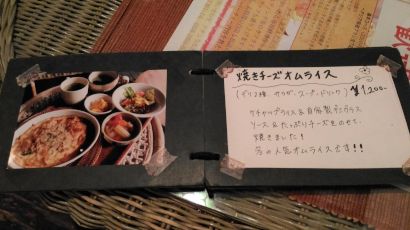 焼きチーズオムライス
(デリ2種、サラダ、スープ、ドリンク) ¥1,200-
ケチャップライス&自家製デミグラス
ソース&たっぷりチーズをのせて、
焼きました!
冬の人気オムライスです!!